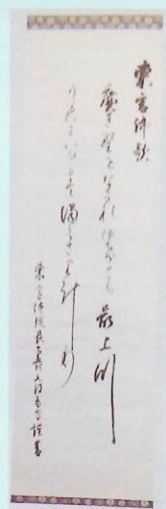 東宮御歌
廣き野をなかれゆけとも最上川
うみにいるまて濁らさり計り
東宮侍従長子爵入江為守謹書